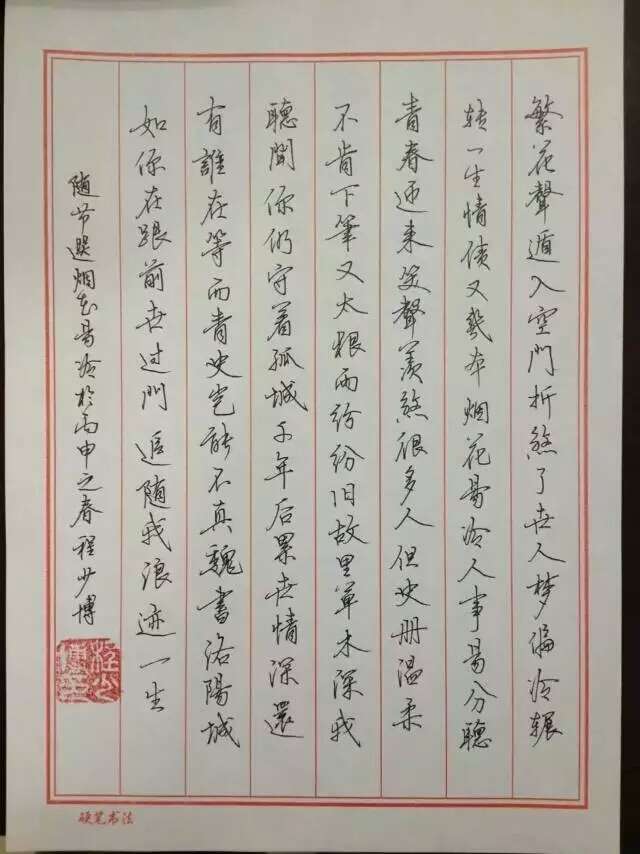 繁花聲遁入空門折煞了世人梦偏冷辗
转一生情债又幾本烟花易冷人事易分聽
青春迎来笑聲羨煞很多人但史册温柔
不肯下筆又太狠雨纷纷旧故里草木深我
聽聞你仍守着孤城千年后累世情深還
有誰在等而青史岂能不真魏書洛陽城
如你在跟前世过門 追随我浪迹一生
随节選烟花易冷於丙申之春程少博
硬笔书法